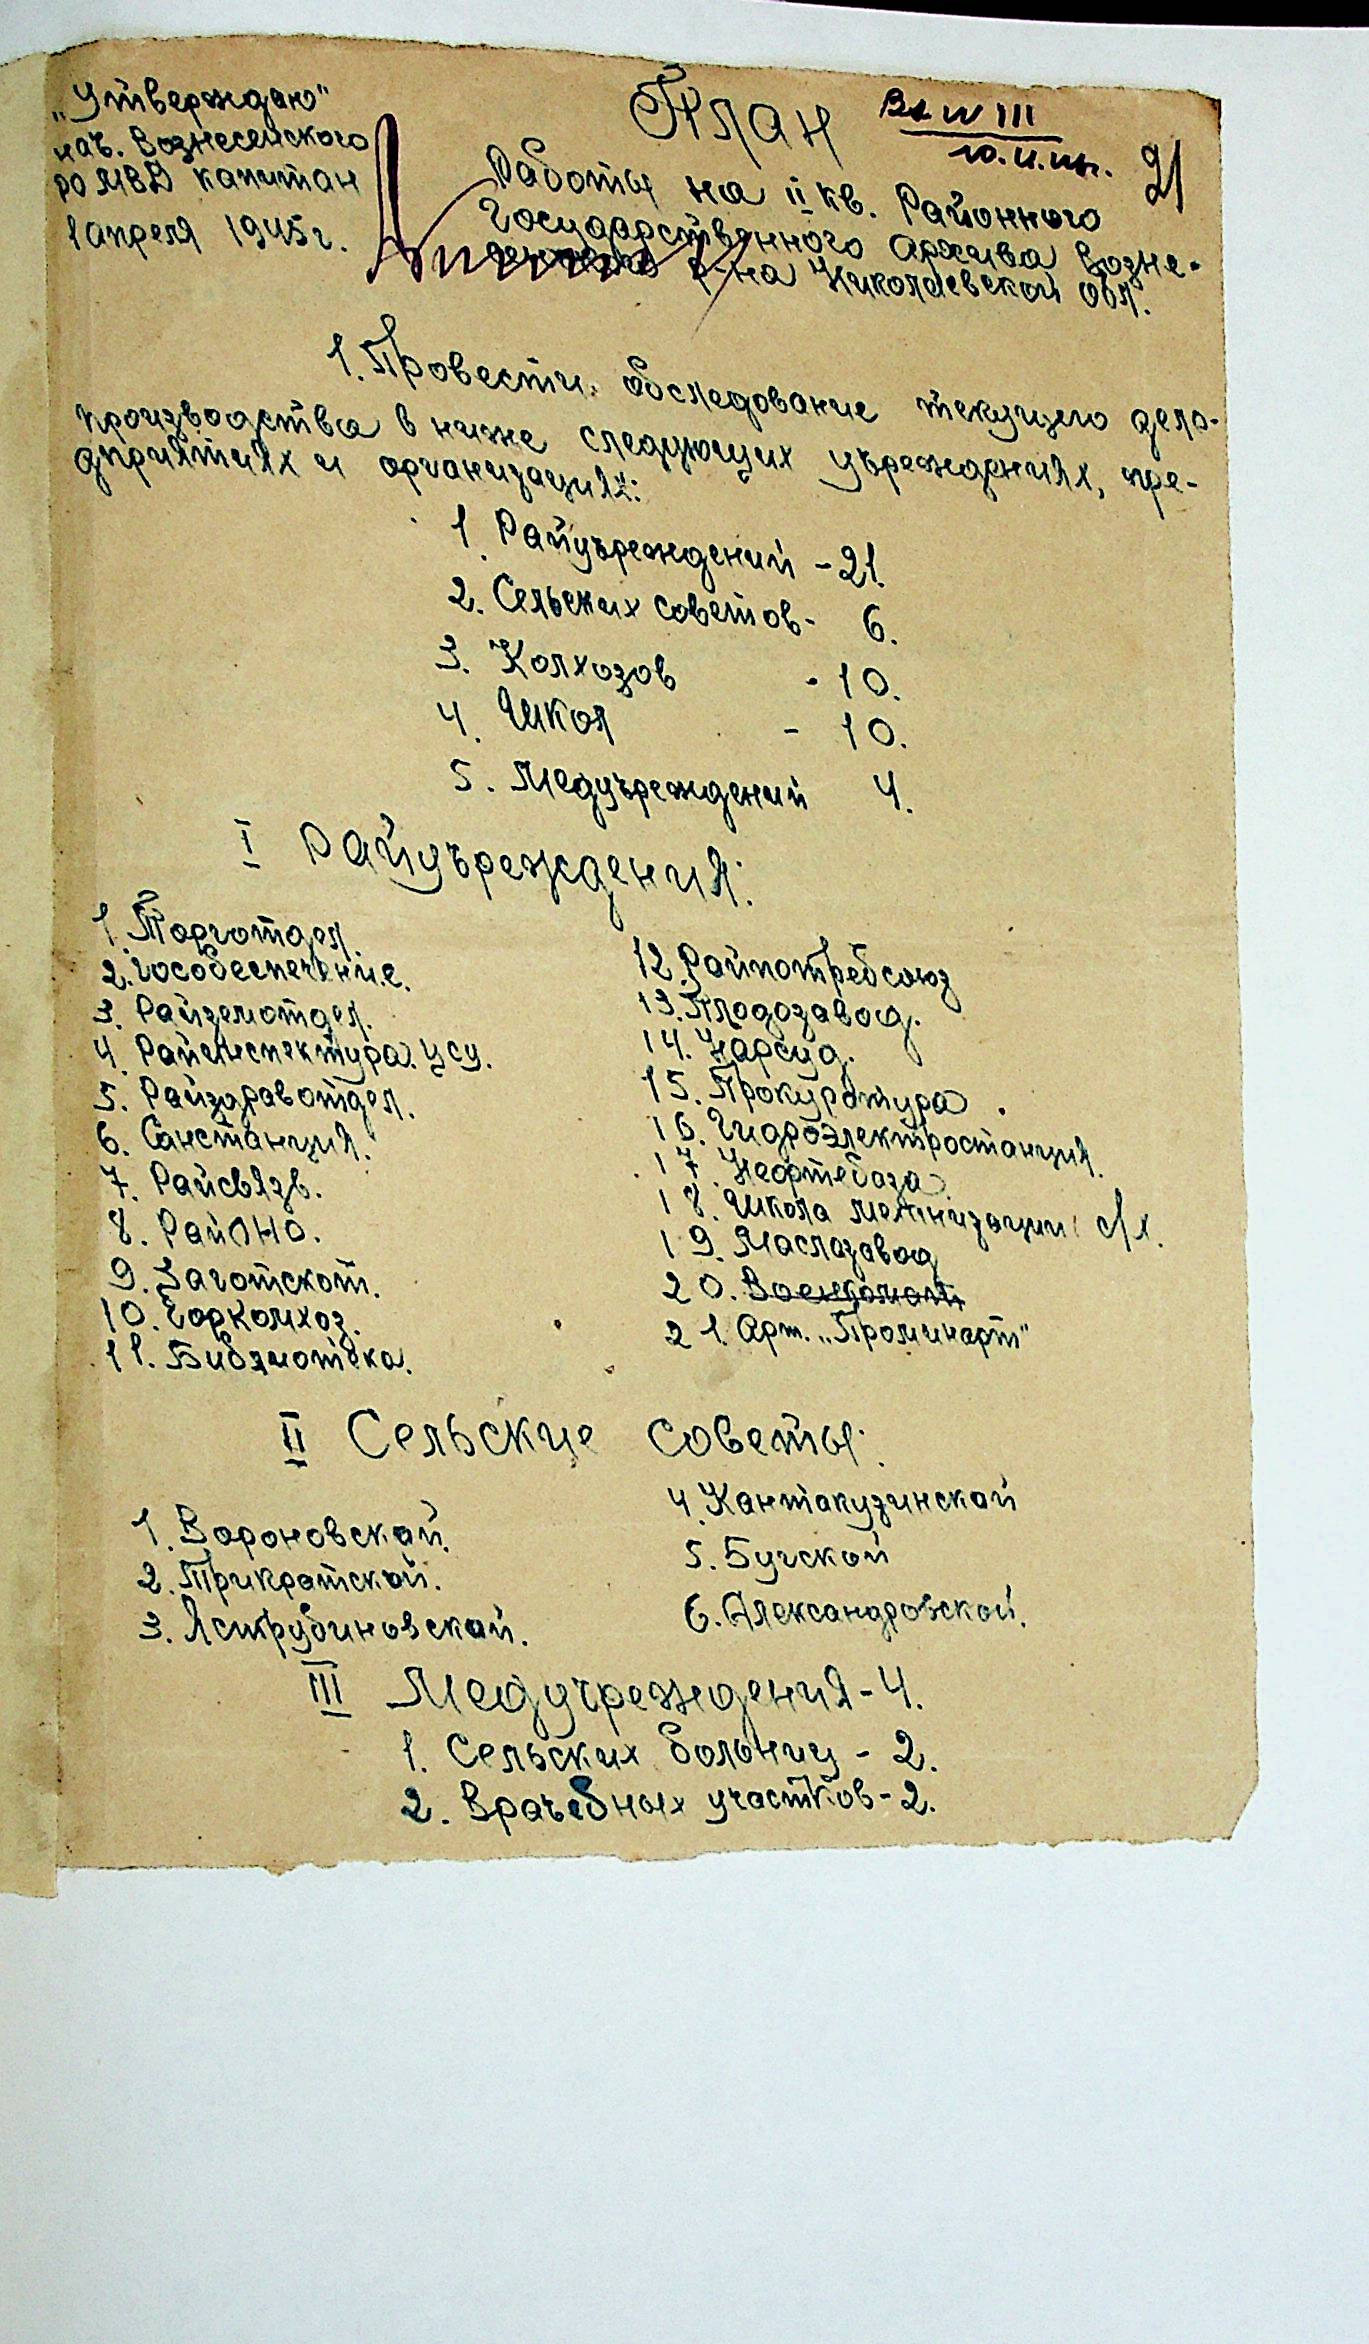 „Утверждаю"
нач. Вознесенского
РО МВД капитан
1 апреля 1945 г.
План
Вх № 111
21
Работы на II кв. Районного
Государственного Архива Возне-
сенского р-на Николаевской обл.
1. Провести обследование текущего дело-
производства в ниже следующих учреждениях, пре-
дприятиях и организациях:
1. Райучреждений - 21.
2. Сельских советов - 6.
3. Колхозов - 10.
4. Школ - 10.
5. Медучреждений 4.
I Райучреждения:
1. Торготдел.
2. Гособеспечение.
3. Райземотдел.
4. Райинспектура ЦСУ.
5. Райздравотдел.
6. Санстанция.
7. Райсвязь.
8. РайОНО.
9. Заготскот.
10. Горкомхоз.
11. Библиотека.
12. Райпотребсоюз
13. Плодозавод.
14. Нарсуд.
15. Прокуратура.
16. Гидроэлектростанция.
17. Нефтебаза.
18. Школа механизации с/х.
19. Маслозавод
20. Военкомат
21. Арт. „Проминарт"
II Сельские советы:
1. Вороновской.
2. Трикратской.
3. Яструбиновской.
4. Кантакузинской
5. Бугской
6. Александровской.
III Медучреждения - 4.
1. Сельских больниц - 2.
2. Врачебных участков - 2.